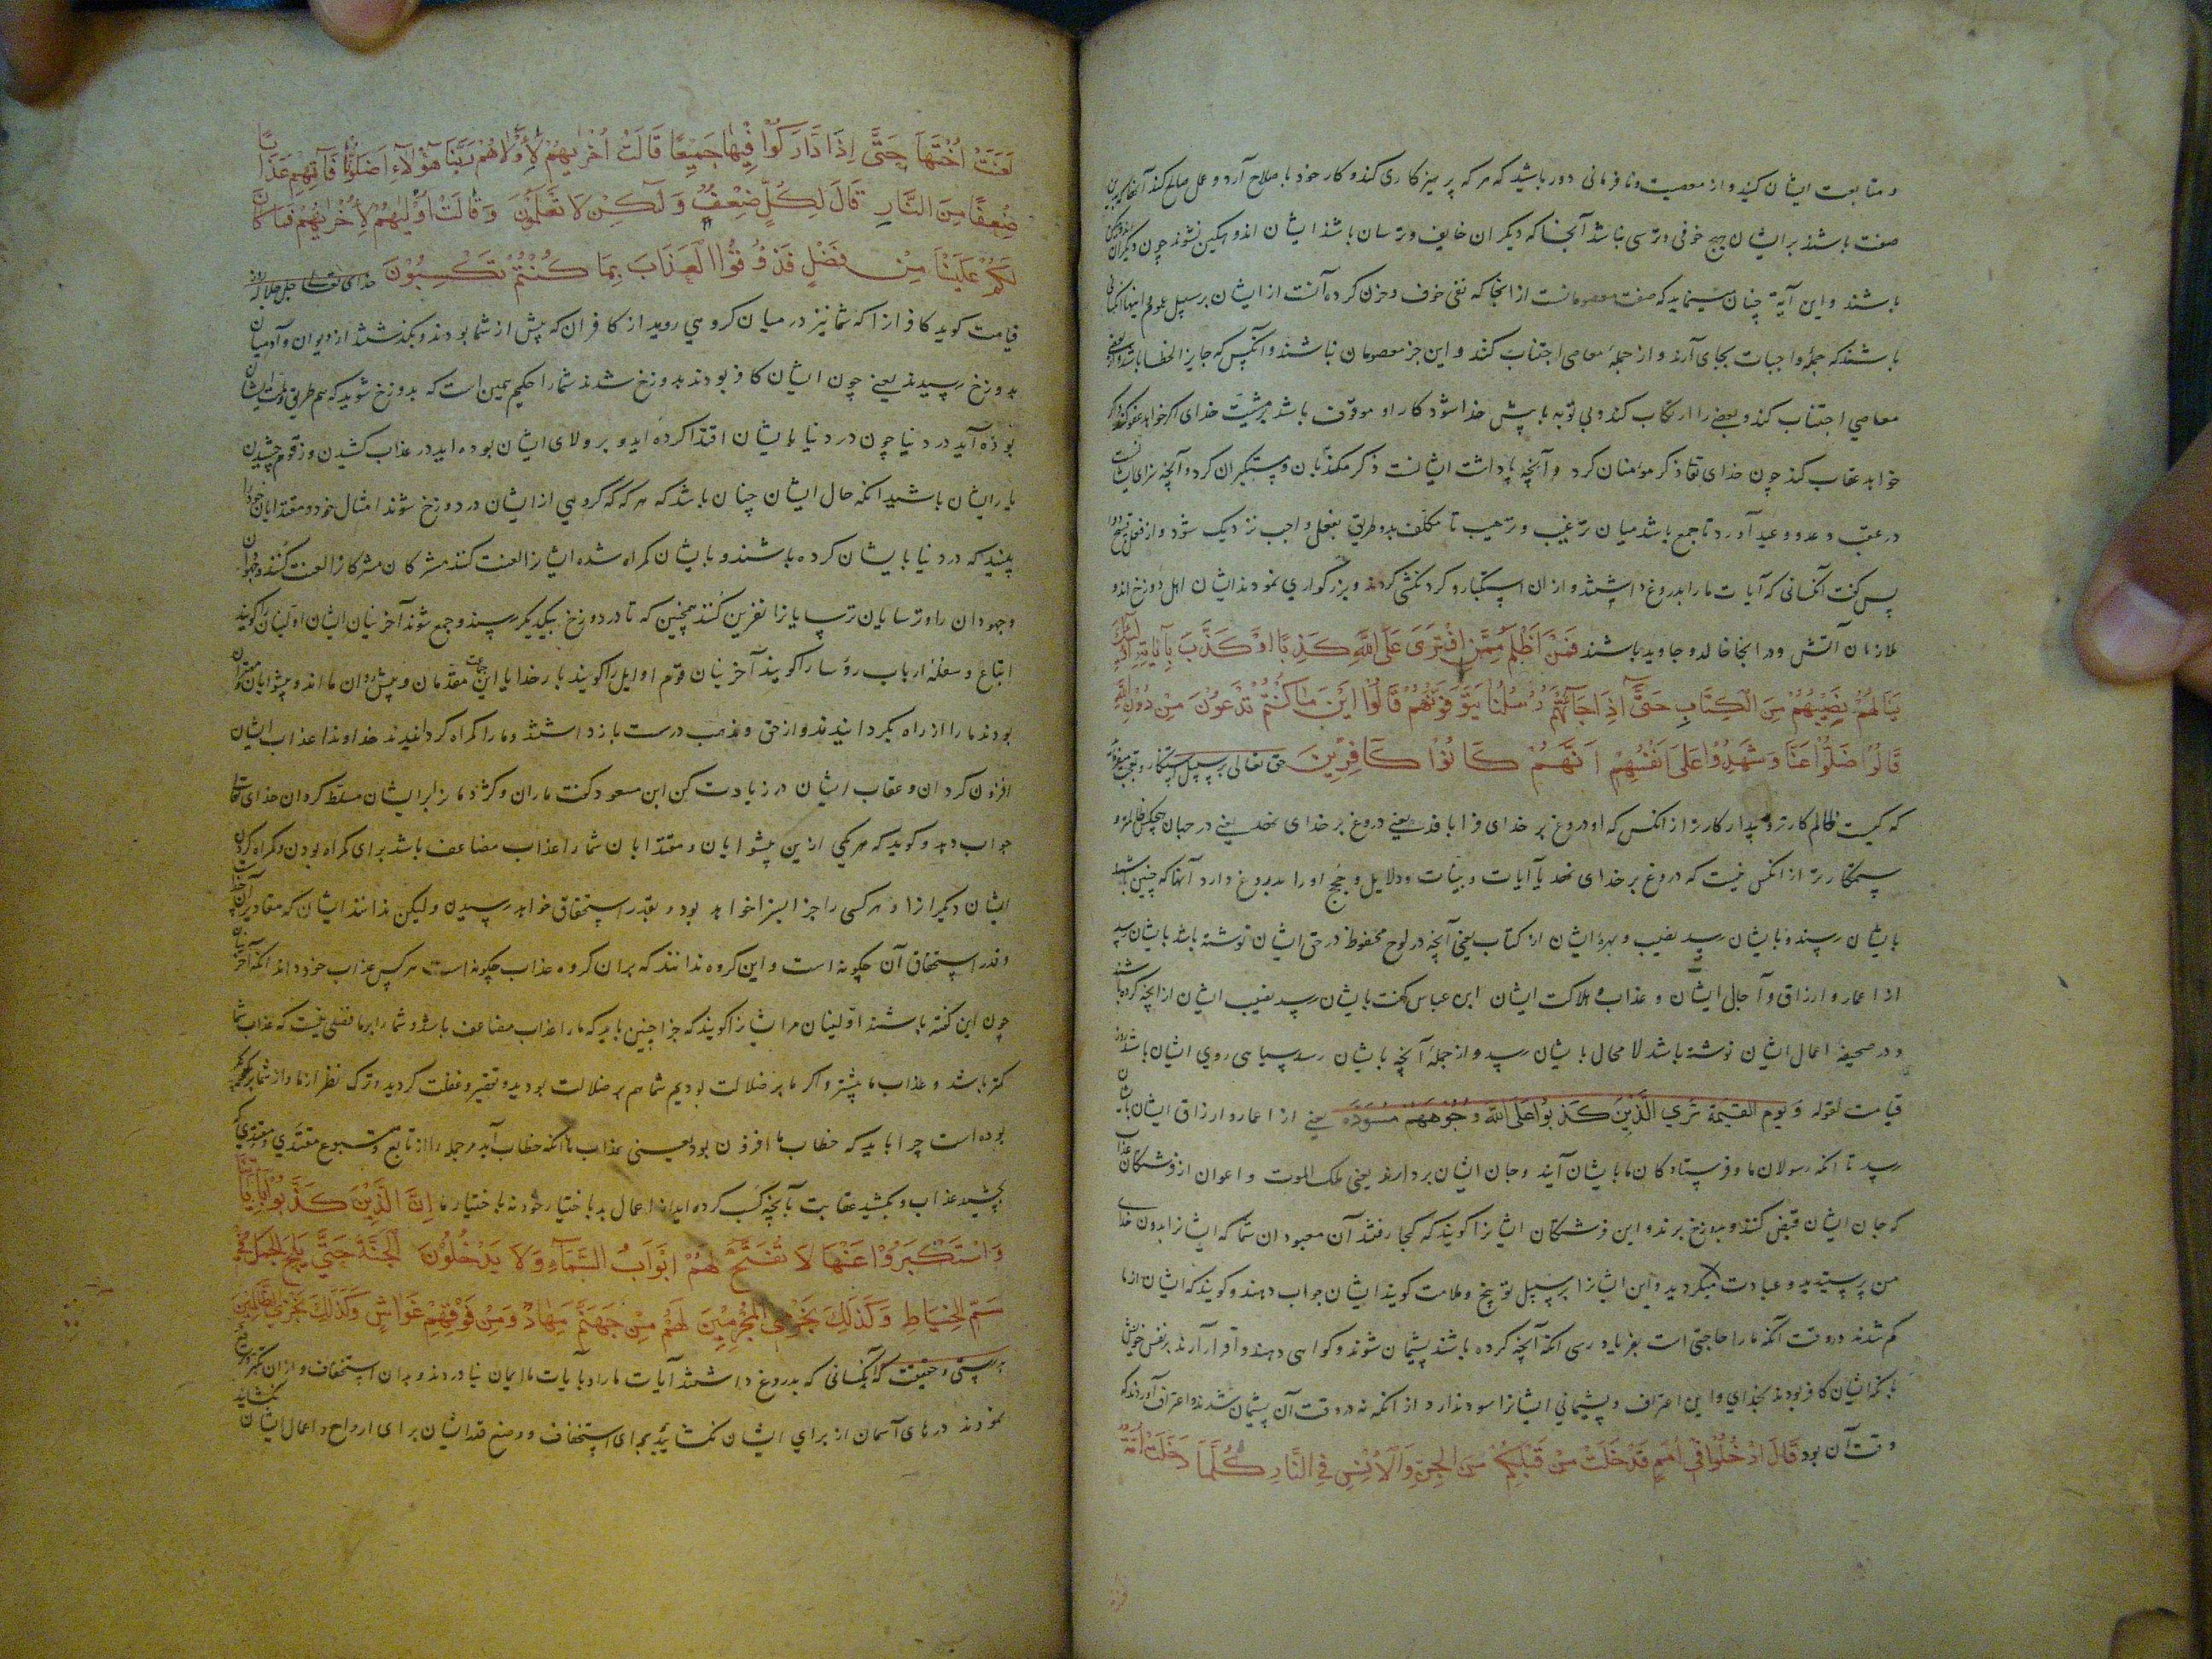 و متابعت ایشان کنید و از معصیت و نافرمانی دور باشید که هر که پرهیزکاری کند و کار خود باصلاح آرد و عمل صالح کند آنها که برین
صفت باشند بر ایشان هیچ خوفی و ترسی نباشد آنجا که دیگران خایف و ترسان باشند ایشان اندوهگین نشوند چون دیگران
باشند و این آیة چنان مینماید که صفت معصومانست از انجا که نفی خوف و حزن کرده آنست از ایشان بر سبیل عموم
باشند که جملهٔ واجبات بجای آرند و از جملهٔ معاصی اجتناب کنند و این جز معصومان نباشند و آنکس که جایز الخطا باشد
معاصی اجتناب کند و بعضی را ارتکاب کند و بی توبه با پیش خدا شود کار او موقوف باشد بر مشیت خدای اگر خواهد عفو کند
خواهد عقاب کند چون خدای تعا ذکر مؤمنان کرد و آنچه پاداشت ایشانست ذکر مکذبان و مستکبران کرد و آنچه سزای ایشانست
در عقب وعد و وعید آورد تا جمع باشد میان ترغیب و ترهیب تا مکلف بدو طریق بفعل واجب نزدیک شود و از فعل قبیح
پس گفت آنکسانی که آیات ما را بدروغ داشتند و از ان استکبار و گردنکشی کردند و بزرگواری نمودند ایشان اهل دوزخ اند و
ملازمان آتش و در انجا خالد و جاوید باشند فَمَنْ اَظْلَمُ مِمَّنِ افْتَرَى عَلَى اللّٰهِ كَذِبًا اَوْ كَذَّبَ بِآيَاتِهِ اُولٰئِكَ
يَنَالُهُمْ نَصِيْبُهُمْ مِنَ الْكِتَابِ حَتّٰى اِذَا جَآءَتْهُمْ رُسُلُنَا يَتَوَفَّوْنَهُمْ قَالُوْا اَيْنَ مَا كُنْتُمْ تَدْعُوْنَ مِنْ دُوْنِ اللّٰهِ
قَالُوْا ضَلُّوْا عَنَّا وَشَهِدُوْا عَلَى اَنْفُسِهِمْ اَنَّهُمْ كَانُوْا كَافِرِيْنَ حق تعالی بر سبیل استنکار
که کیست ظالم کارتر و بیدادکارتر از انکس که او دروغ بر خدای فرا بافد یعنی دروغ بر خدای نهد یعنی در جهان هیچکس ظالمتر و
ستمکارتر از انکس نیست که دروغ بر خدای نهد یا آیات و بینات و دلایل و حجج او را بدروغ دارد آنها که چنین باشند
بایشان رسند و بایشان رسد نصیب و بهرهٔ ایشان از کتاب یعنی آنچه در لوح محفوظ در حق ایشان نوشته باشد بایشان رسد
از اعمار و ارزاق و آجال ایشان و عذاب و هلاکت ایشان ابن عباس گفت بایشان رسد نصیب ایشان از انچه کرده باشند
و در صحیفهٔ اعمال ایشان نوشته باشد لا محال بایشان رسد و از جملهٔ آنچه بایشان رسد سیاهی روی ایشان باشد روز
قیامت لقوله وَيَوْمَ الْقِيٰمَةِ تَرَي الَّذِيْنَ كَذَبُوْا عَلَى اللّٰهِ وُجُوْهُهُمْ مُسْوَدَّةٌ یعنی از اعمار و ارزاق ایشان بایشان
رسد تا انکه رسولان ما و فرستادگان ما بایشان آیند و جان ایشان بردارند یعنی ملک الموت و اعوان از فرشتگان عذاب
که جان ایشان قبض کنند و بدوزخ برند و این فرشتگان ایشانرا گویند که کجا رفتند آن معبودان شما که ایشانرا بدون خدای
من پرستیدید و عبادت میکردید و این ایشانرا بر سبیل توبیخ و ملامت گویند ایشان جواب دهند و گویند که ایشان از ما
گم شدند در وقت آنکه ما را حاجتی است بفریادرسی انکه آنچه کرده باشند پشیمان شوند و گواهی دهند و اقرار آرند بر نفس خویش
بانکه ایشان کافر بودند بخدای و این اعتراف و پشیمانی ایشانرا سود ندارد از انکه نه در وقت آن پشیمان شدند و اعتراف آوردند که
وقت آن بود قَالَ ادْخُلُوْا فِيْ اُمَمٍ قَدْ خَلَتْ مِنْ قَبْلِكُمْ مِنَ الْجِنِّ وَالْاِنْسِ فِي النَّارِ كُلَّمَا دَخَلَتْ اُمَّةٌ
لَعَنَتْ اُخْتَهَا حَتّٰى اِذَا ادَّارَكُوْا فِيْهَا جَمِيْعًا قَالَتْ اُخْرٰيهُمْ لِاُوْلَاهُمْ رَبَّنَا هٰؤُلَآءِ اَضَلُّوْنَا فَآتِهِمْ عَذَابًا
ضِعْفًا مِنَ النَّارِ قَالَ لِكُلٍّ ضِعْفٌ وَلٰكِنْ لَا تَعْلَمُوْنَ وَقَالَتْ اُوْلٰيهُمْ لِاُخْرٰيهُمْ فَمَا كَانَ
لَكُمْ عَلَيْنَا مِنْ فَضْلٍ فَذُوْقُوْا الْعَذَابَ بِمَا كُنْتُمْ تَكْسِبُوْنَ خدای تعالی جل جلاله روز
قیامت گوید کافرانرا که شما نیز در میان گروهی روید از کافران که پیش از شما بودند و بگذشتند از دیوان و آدمیان
بدوزخ رسیدند یعنی چون ایشان کافر بودند بدوزخ شدند شما را حکم همین است که بدوزخ شوید که هم طریق و ملت ایشان
بوده آید در دنیا چون در دنیا بایشان اقتدا کرده اید و بر ولای ایشان بوده اید در عذاب کشیدن و زقوم چشیدن
یار ایشان باشید انکه حال ایشان چنان باشد که هر که که گروهی از ایشان در دوزخ شوند امثال خود و مقتدایان خود را
بینند که در دنیا بایشان کرده باشند و بایشان گمراه شده ایشانرا لعنت کنند مشرکان مشرکانرا لعنت کنند و جهودان
و جهودان را و ترسایان ترسایانرا نفرین کنند همچنین که تا در دوزخ بیکدیگر رسند و جمع شوند آخرینیان ایشان اولینانرا گویند
اتباع و سفله ارباب رؤسا را گویند آخرینیان قوم اوایل را گویند بار خدایا این مقدمان و پیش روان ما اند و پیشوایان
بودند ما را از راه بگردانیدند و از حق و مذهب درست باز داشتند و ما را گمراه گردانیدند خداوندا عذاب ایشان
افزون گردان و عقاب ایشان در زیادت کن ابن مسعود گفت ماران و کژدمانرا بر ایشان مسلط گردان خدای تعالی
جواب دهد و گوید که هر یکی ازین پیشوایان و مقتدایان شما را عذاب مضاعف باشد برای گمراه بودن و گمراه کردن
ایشان دیگرانرا و هر کسی را جزا بسزا خواهد بود و بقدر استحقاق خواهد رسیدن و لیکن ندانند ایشان که مقادیر آن
و قدر استحقاق آن چگونه است و این گروه ندانند که بران گروه عذاب چگونه است هر کس عذاب خود داند انکه آخرینیان
چون این گفته باشند اولینان مر ایشانرا گویند که جزا چنین باید که ما را عذاب مضاعف باشد و شما را بر ما فضلی نیست که عذاب شما
کمتر باشد و عذاب ما بیشتر و اگر ما بر ضلالت بودیم شما هم بر ضلالت بودید و تقصیر و غفلت کردید و ترک نظر از ما و از شما
بوده است چرا باید که خطاب ما افزون بود یعنی عذاب ما انکه خطاب آید مر جمله را از تابع و متبوع مقتدی و مقتدی که
بچشید عذاب و بکشید عقابت بآنچه کسب کرده اید از اعمال بد باختیار خود نه باختیار ما اِنَّ الَّذِيْنَ كَذَّبُوْا بِآيَاتِنَا
وَاسْتَكْبَرُوْا عَنْهَا لَا تُفَتَّحُ لَهُمْ اَبْوَابُ السَّمَآءِ وَلَا يَدْخُلُوْنَ الْجَنَّةَ حَتّٰى يَلِجَ الْجَمَلُ فِيْ
سَمِّ الْخِيَاطِ وَكَذٰلِكَ نَجْزِي الْمُجْرِمِيْنَ لَهُمْ مِنْ جَهَنَّمَ مِهَادٌ وَمِنْ فَوْقِهِمْ غَوَاشٍ وَكَذٰلِكَ نَجْزِي الظَّالِمِيْنَ
براستی و حقیقت که آنکسانی که بدروغ داشتند آیات ما را و بآیات ما ایمان نیاوردند و بدان استخفاف و ازان تکبر
نمودند درهای آسمان از برای ایشان نگشایند برای استخفاف و وضع قدر ایشان برای ارواح و اعمال ایشان